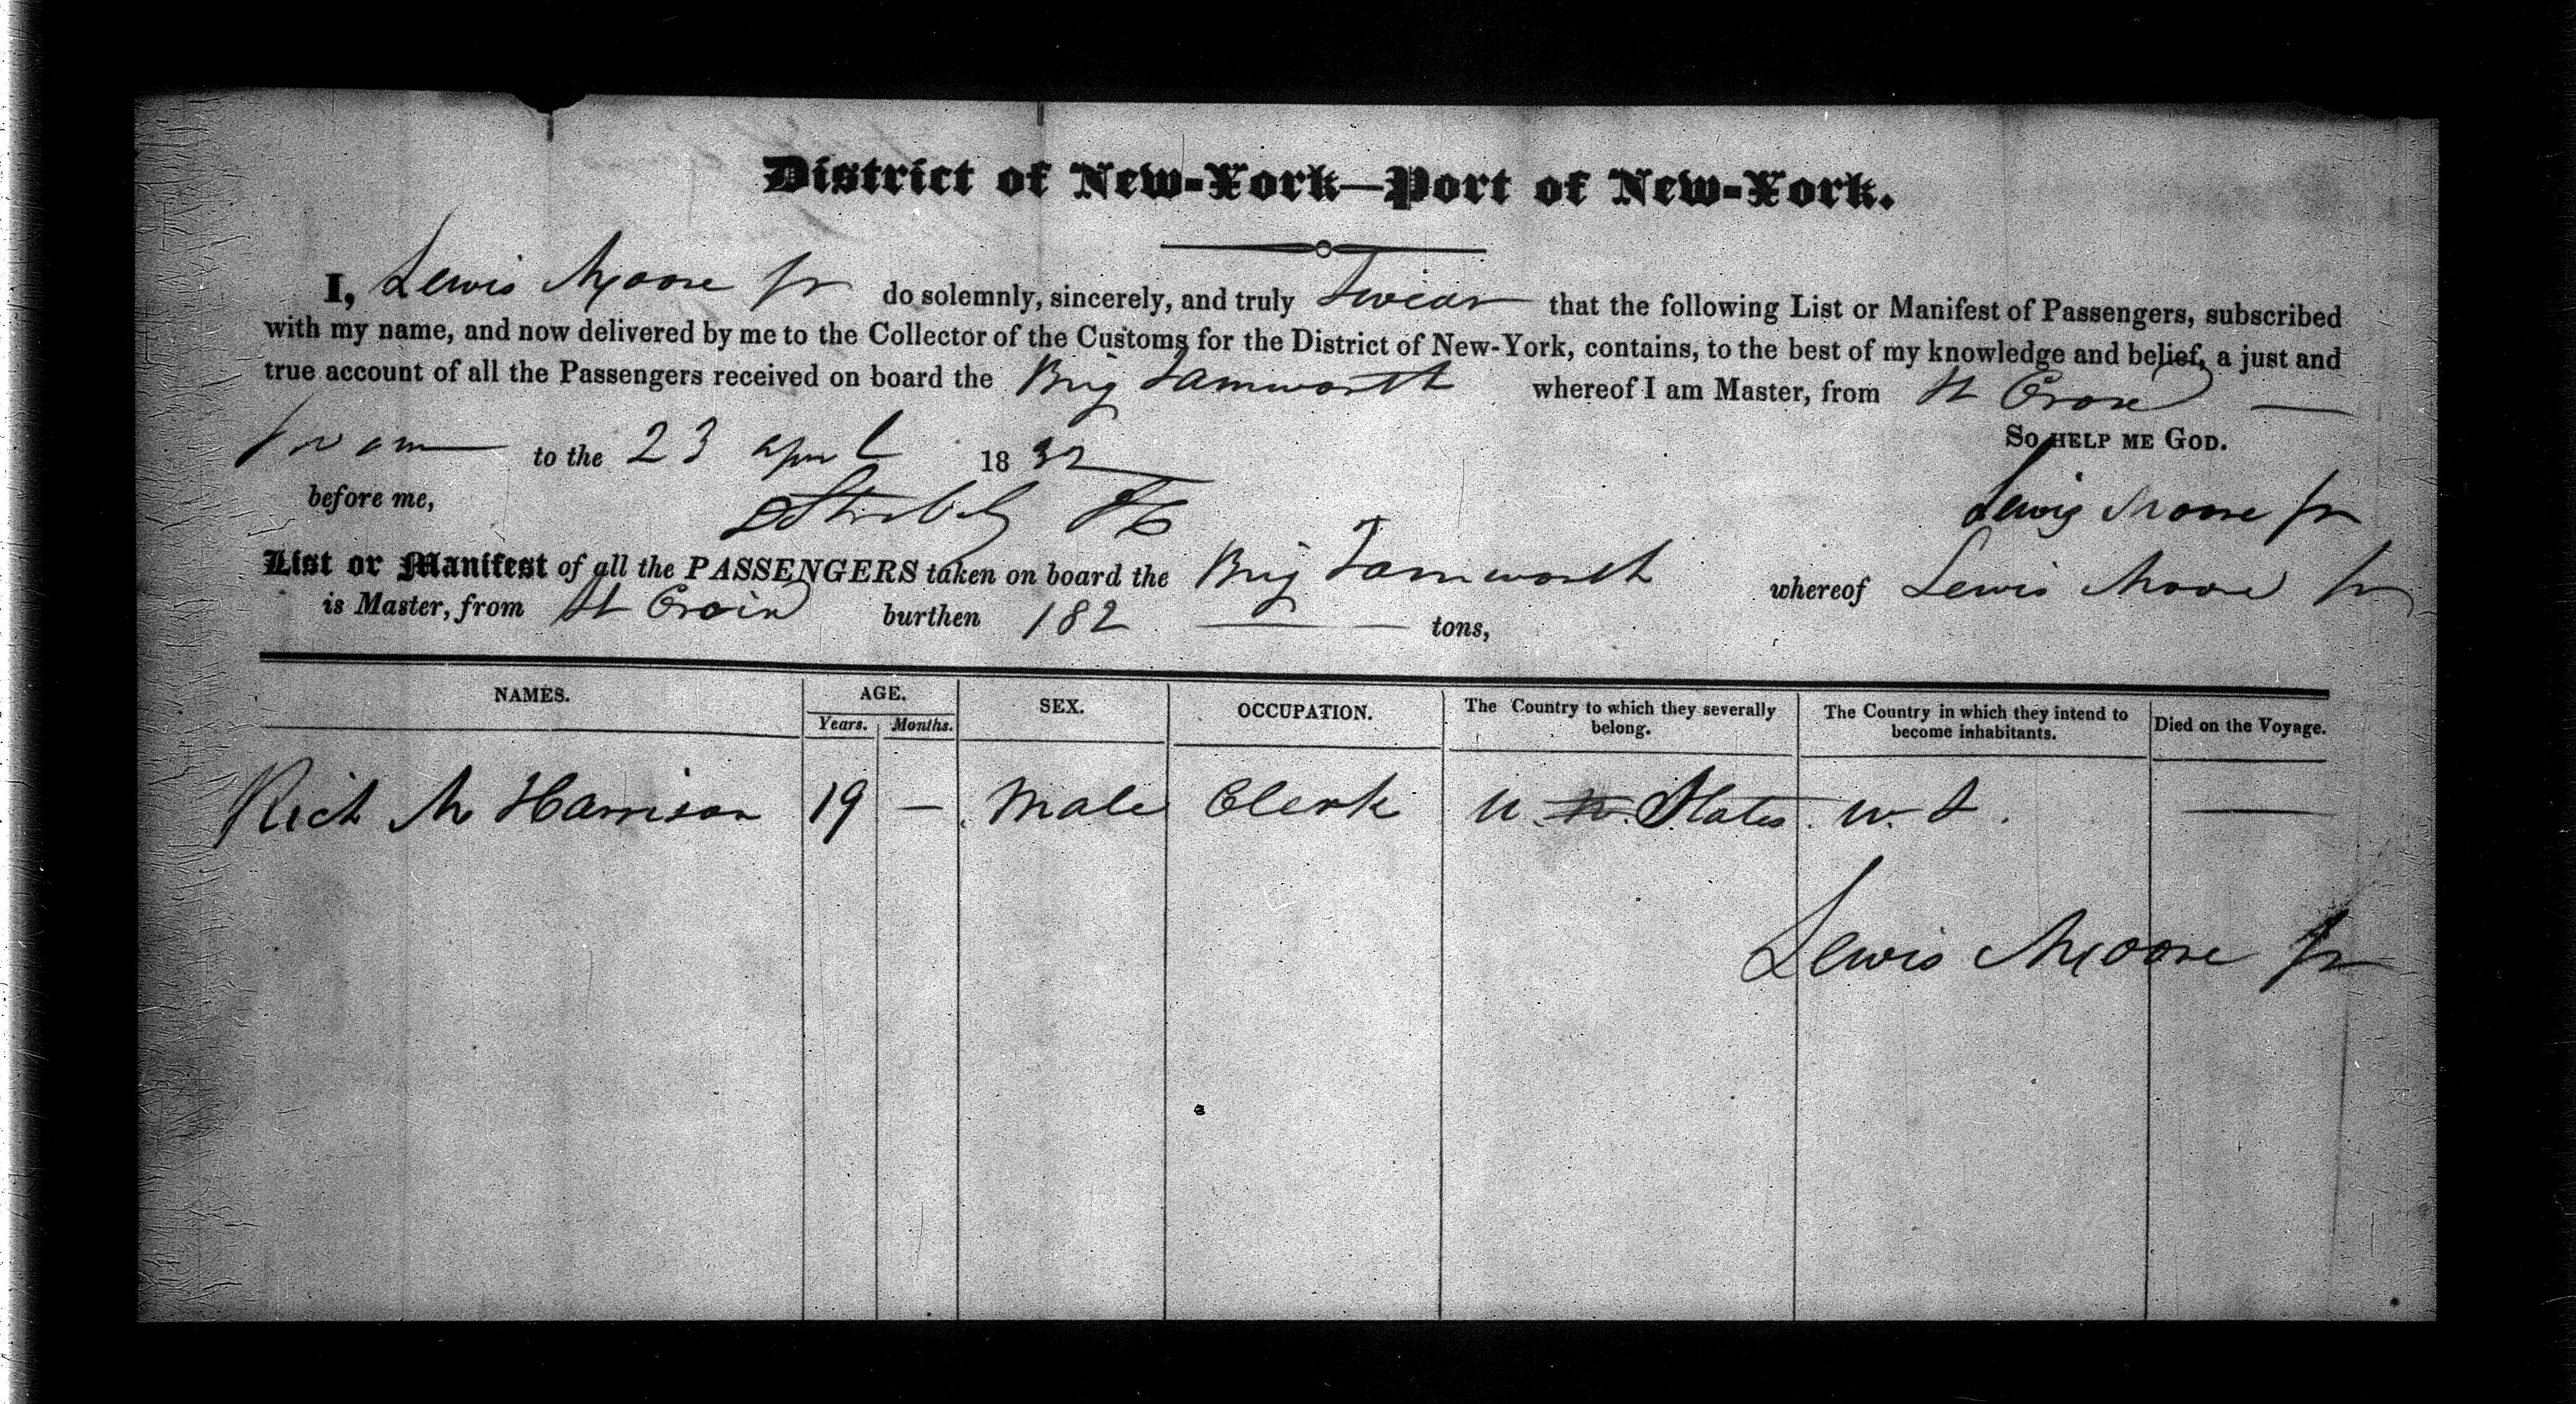 District of New-York—Port of New-York.
I, Lewis Moore Jr do solemnly, sincerely, and truly Swear that the following List or Manifest of Passengers, subscribed
with my name, and now delivered by me to the Collector of the Customs for the District of New-York, contains, to the best of my knowledge and belief, a just and
true account of all the Passengers received on board the Brig Tamworth whereof I am Master, from St Croix
Sworn to the 23 April 1832 So HELP ME GOD.
before me, Lewis Moore Jr
List or Manifest of all the PASSENGERS taken on board the Brig Tamworth whereof Lewis Moore Jr
is Master, from St Croix burthen 182 tons,
NAMES. AGE. SEX. OCCUPATION. The Country to which they severally belong. The Country in which they intend to become inhabitants. Died on the Voyage.
Years. Months.
Rich M Harrison 19 — Male Clerk U. States W. I. —
Lewis Moore Jr